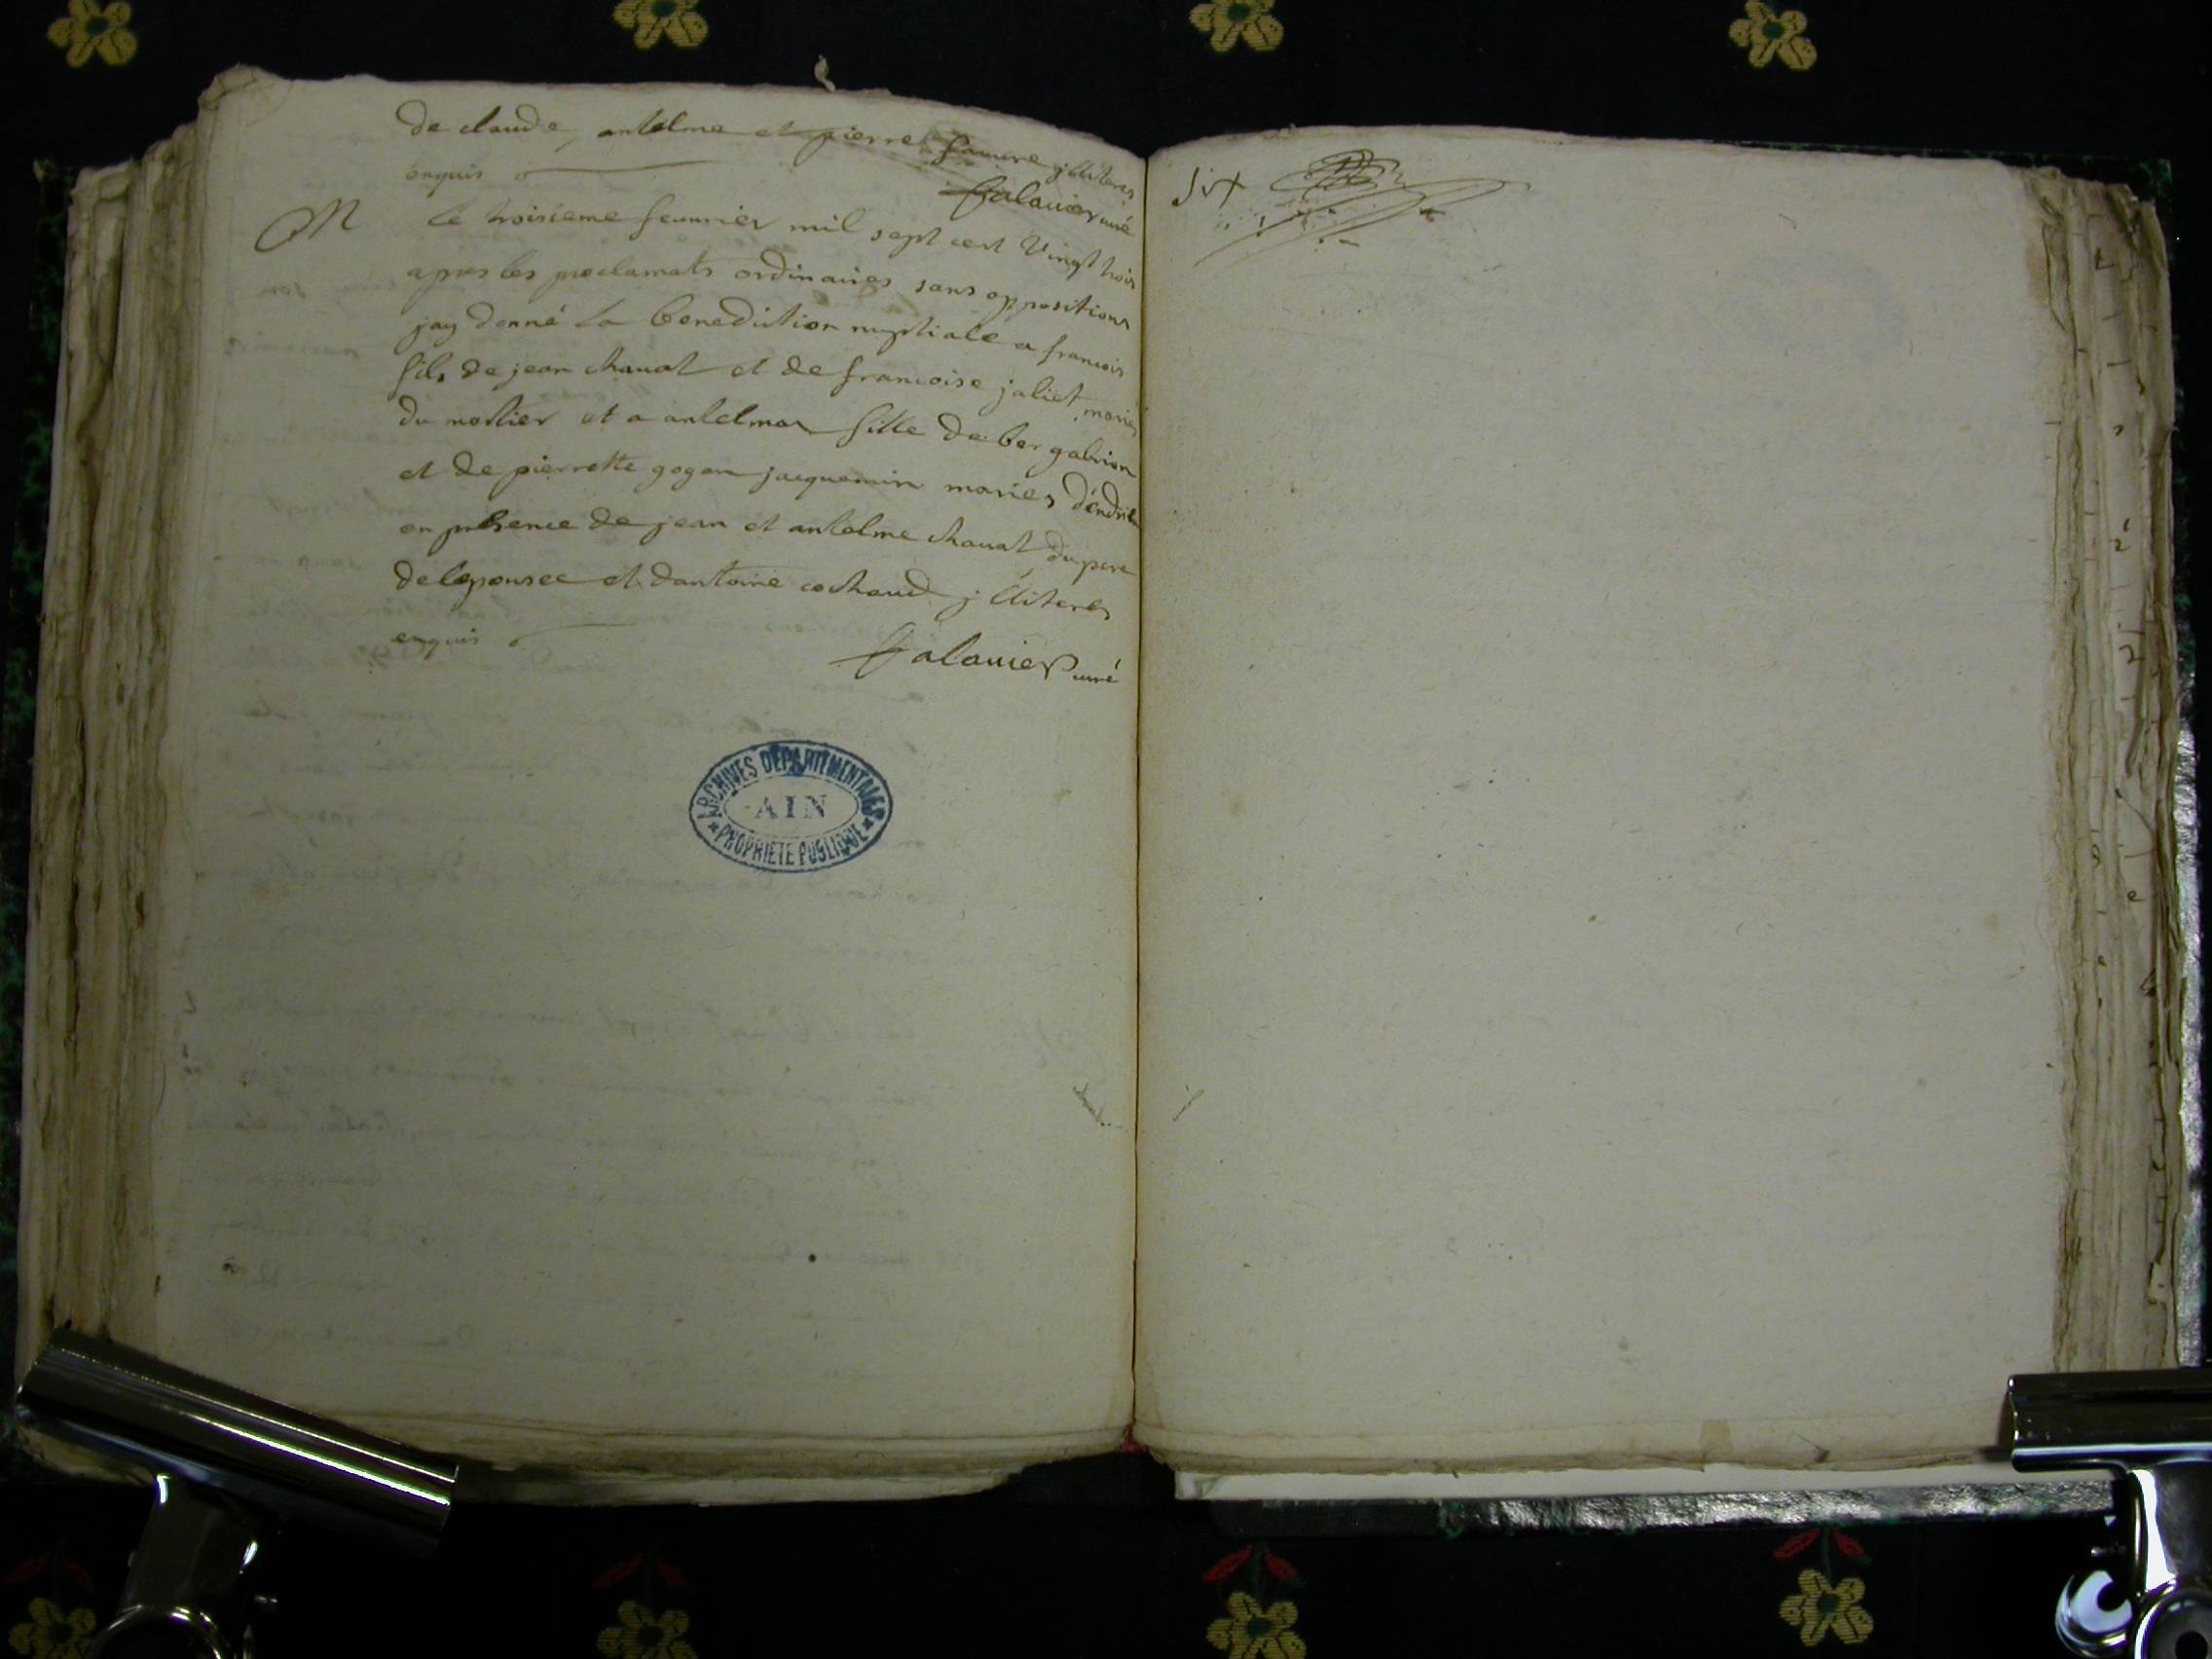 de claude, antelme et pierre faure illiteres
enquis
Galauier curé
M
le troisieme feuurier mil sept cent vingt trois
apres les proclamats ordinaires sans oppositions
jay donné la benediction nuptiale a francois
fils de jean chauat et de francoise jaliet mariés
du mortier et a antelma fille de ber gabrion
et de pierrette gogan jacquemin mariés d'endrieu
en presence de jean et antelme chauat du pere
de lepousee et dantoine cochaud illiteres
enquis
Galauier curé
ARCHIVES DEPARTEMENTALES
AIN
PROPRIETE PUBLIQUE
six